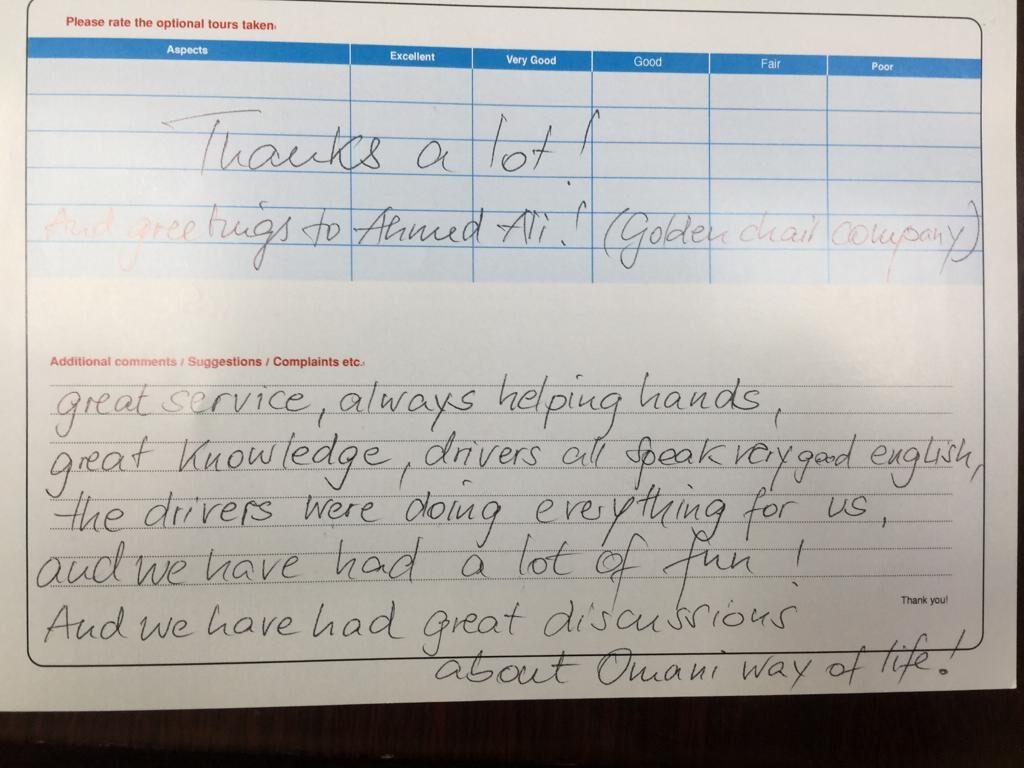 Please rate the optional tours taken:
Aspects Excellent Very Good Good Fair Poor
Thanks a lot!
And greetings to Ahmed Ali! (Golden chair company)
Additional comments / Suggestions / Complaints etc.:
great service, always helping hands,
great knowledge, drivers all speak very good english,
the drivers were doing everything for us,
and we have had a lot of fun!
Thank you!
And we have had great discussions
about Omani way of life!